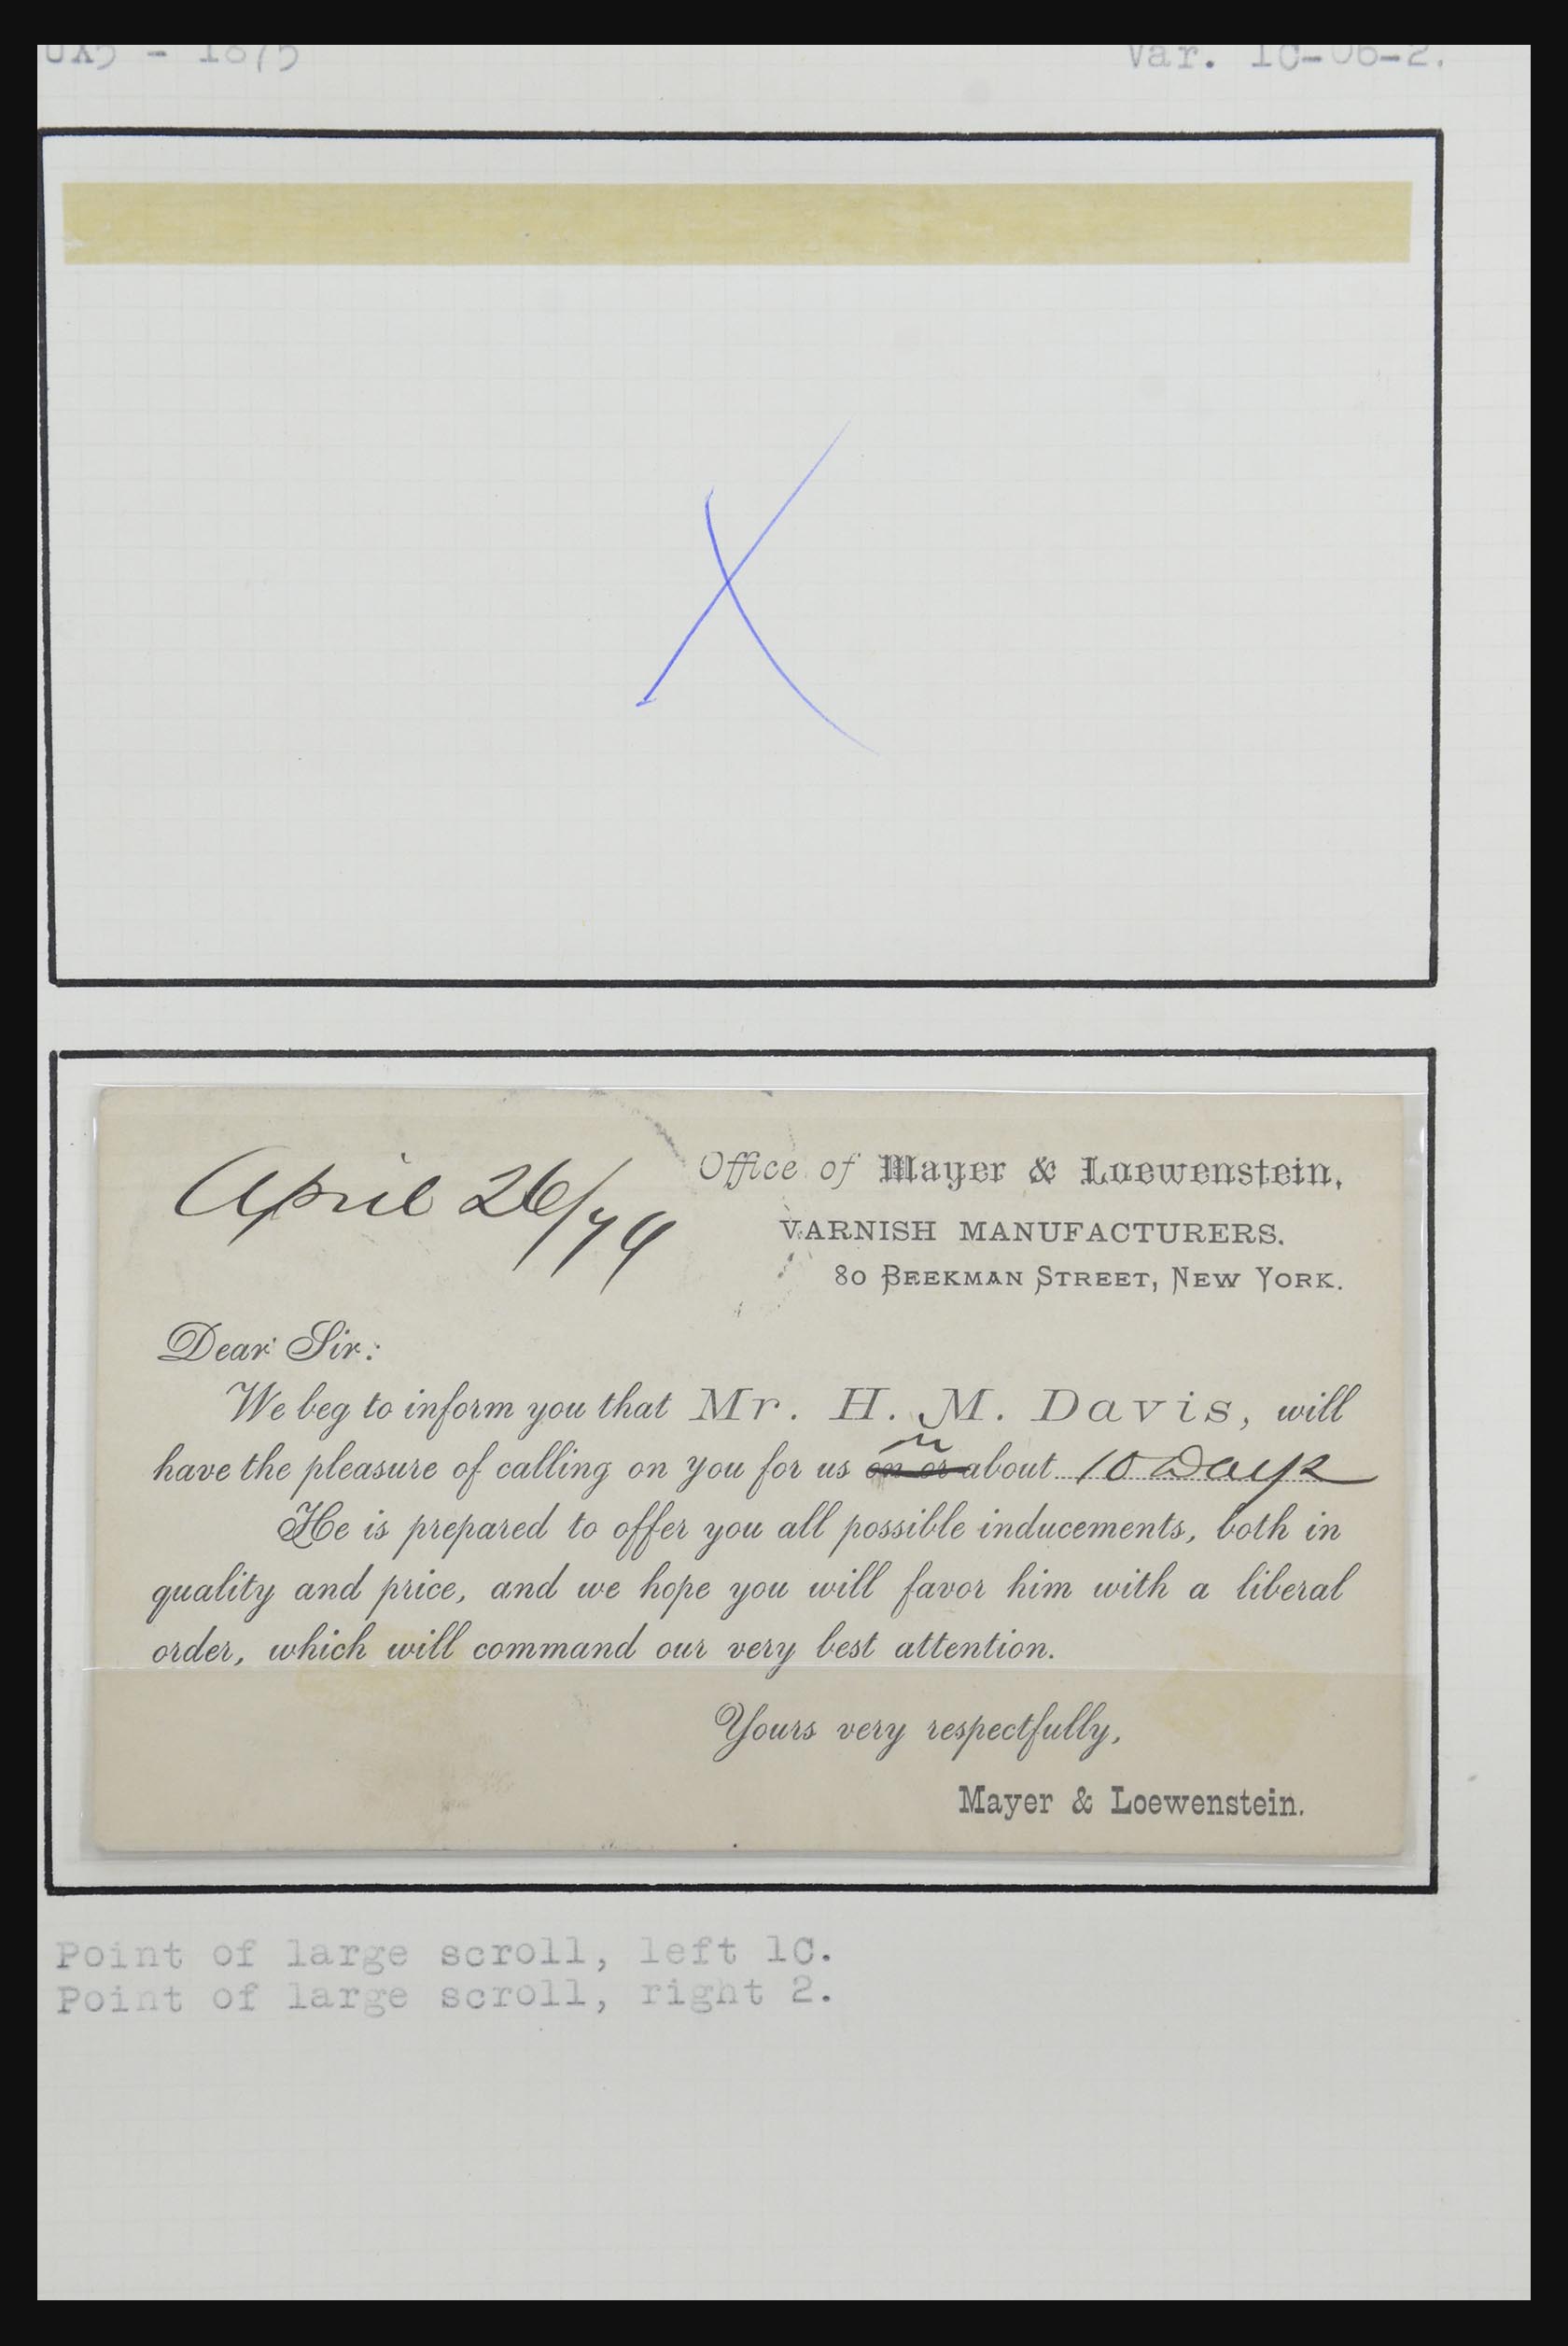 UX5 - 1875 Var. 1C-06-2.
X
April 26/79
Office of Mayer & Loewenstein,
VARNISH MANUFACTURERS.
80 BEEKMAN STREET, NEW YORK.
Dear Sir:
We beg to inform you that Mr. H. M. Davis, will
in
have the pleasure of calling on you for us on or about 10 Days
He is prepared to offer you all possible inducements, both in
quality and price, and we hope you will favor him with a liberal
order, which will command our very best attention.
Yours very respectfully,
Mayer & Loewenstein.
Point of large scroll, left 1C.
Point of large scroll, right 2.